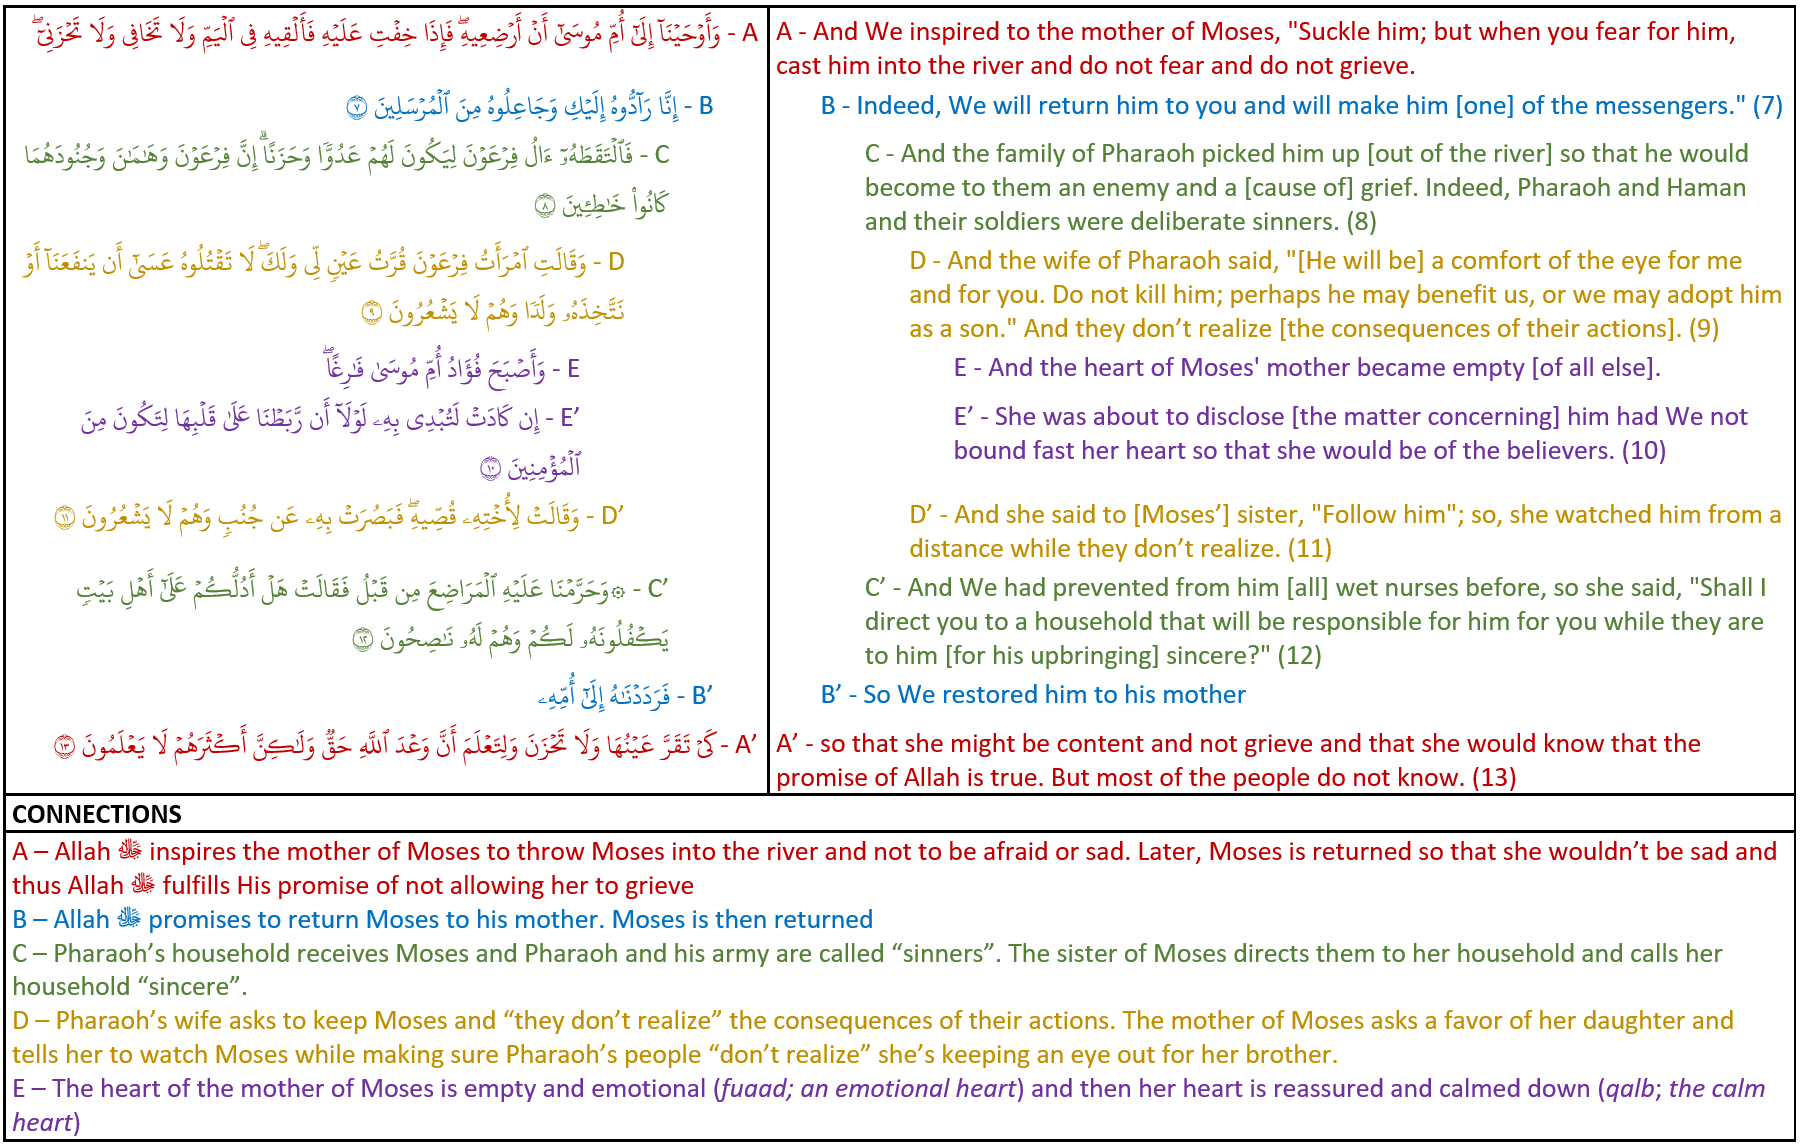 A - وَأَوۡحَيۡنَآ إِلَىٰٓ أُمِّ مُوسَىٰٓ أَنۡ أَرۡضِعِيهِۖ فَإِذَا خِفۡتِ عَلَيۡهِ فَأَلۡقِيهِ فِي ٱلۡيَمِّ وَلَا تَخَافِي وَلَا تَحۡزَنِيٓۖ
B - إِنَّا رَآدُّوهُ إِلَيۡكِ وَجَاعِلُوهُ مِنَ ٱلۡمُرۡسَلِينَ ۝٧
C - فَٱلۡتَقَطَهُۥٓ ءَالُ فِرۡعَوۡنَ لِيَكُونَ لَهُمۡ عَدُوّٗا وَحَزَنًاۗ إِنَّ فِرۡعَوۡنَ وَهَٰمَٰنَ وَجُنُودَهُمَا
كَانُواْ خَٰطِـِٔينَ ۝٨
D - وَقَالَتِ ٱمۡرَأَتُ فِرۡعَوۡنَ قُرَّتُ عَيۡنٖ لِّي وَلَكَۖ لَا تَقۡتُلُوهُ عَسَىٰٓ أَن يَنفَعَنَآ أَوۡ
نَتَّخِذَهُۥ وَلَدٗا وَهُمۡ لَا يَشۡعُرُونَ ۝٩
E - وَأَصۡبَحَ فُؤَادُ أُمِّ مُوسَىٰ فَٰرِغًاۖ
E’ - إِن كَادَتۡ لَتُبۡدِي بِهِۦ لَوۡلَآ أَن رَّبَطۡنَا عَلَىٰ قَلۡبِهَا لِتَكُونَ مِنَ
ٱلۡمُؤۡمِنِينَ ۝١٠
D’ - وَقَالَتۡ لِأُخۡتِهِۦ قُصِّيهِۖ فَبَصُرَتۡ بِهِۦ عَن جُنُبٖ وَهُمۡ لَا يَشۡعُرُونَ ۝١١
C’ - ۞وَحَرَّمۡنَا عَلَيۡهِ ٱلۡمَرَاضِعَ مِن قَبۡلُ فَقَالَتۡ هَلۡ أَدُلُّكُمۡ عَلَىٰٓ أَهۡلِ بَيۡتٖ
يَكۡفُلُونَهُۥ لَكُمۡ وَهُمۡ لَهُۥ نَٰصِحُونَ ۝١٢
B’ - فَرَدَدۡنَٰهُ إِلَىٰٓ أُمِّهِۦ
A’ - كَيۡ تَقَرَّ عَيۡنُهَا وَلَا تَحۡزَنَ وَلِتَعۡلَمَ أَنَّ وَعۡدَ ٱللَّهِ حَقّٞ وَلَٰكِنَّ أَكۡثَرَهُمۡ لَا يَعۡلَمُونَ ۝١٣
A - And We inspired to the mother of Moses, "Suckle him; but when you fear for him,
cast him into the river and do not fear and do not grieve.
B - Indeed, We will return him to you and will make him [one] of the messengers." (7)
C - And the family of Pharaoh picked him up [out of the river] so that he would
become to them an enemy and a [cause of] grief. Indeed, Pharaoh and Haman
and their soldiers were deliberate sinners. (8)
D - And the wife of Pharaoh said, "[He will be] a comfort of the eye for me
and for you. Do not kill him; perhaps he may benefit us, or we may adopt him
as a son." And they don’t realize [the consequences of their actions]. (9)
E - And the heart of Moses' mother became empty [of all else].
E’ - She was about to disclose [the matter concerning] him had We not
bound fast her heart so that she would be of the believers. (10)
D’ - And she said to [Moses’] sister, "Follow him"; so, she watched him from a
distance while they don’t realize. (11)
C’ - And We had prevented from him [all] wet nurses before, so she said, "Shall I
direct you to a household that will be responsible for him for you while they are
to him [for his upbringing] sincere?" (12)
B’ - So We restored him to his mother
A’ - so that she might be content and not grieve and that she would know that the
promise of Allah is true. But most of the people do not know. (13)
CONNECTIONS
A – Allah ﷻ inspires the mother of Moses to throw Moses into the river and not to be afraid or sad. Later, Moses is returned so that she wouldn’t be sad and
thus Allah ﷻ fulfills His promise of not allowing her to grieve
B – Allah ﷻ promises to return Moses to his mother. Moses is then returned
C – Pharaoh’s household receives Moses and Pharaoh and his army are called “sinners”. The sister of Moses directs them to her household and calls her
household “sincere”.
D – Pharaoh’s wife asks to keep Moses and “they don’t realize” the consequences of their actions. The mother of Moses asks a favor of her daughter and
tells her to watch Moses while making sure Pharaoh’s people “don’t realize” she’s keeping an eye out for her brother.
E – The heart of the mother of Moses is empty and emotional (fuaad; an emotional heart) and then her heart is reassured and calmed down (qalb; the calm
heart)